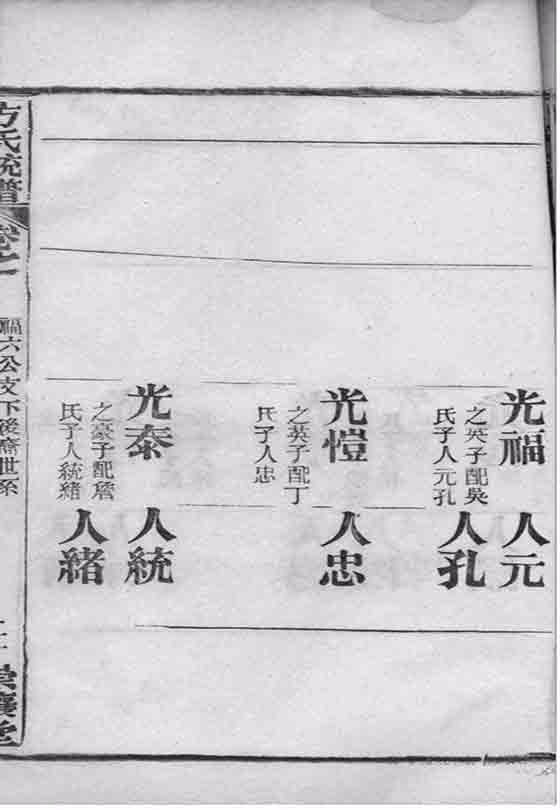 光福
之英子配吳
氏子人元孔
人元
人孔
光愷
之英子配丁
氏子人忠
人忠
光泰
之豪子配詹
氏子人統緒
人統
人緒
方氏統譜
卷之
福六公支下後裔世系